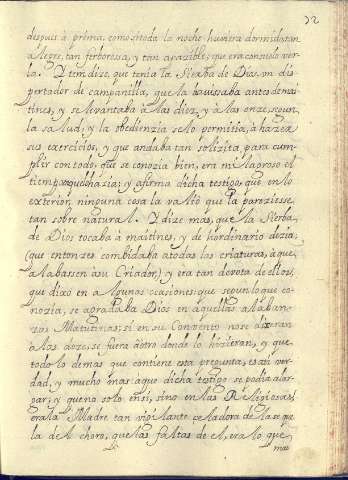 32
despues à prima, como si toda la noche huuiera dormido tan
alegre, tan ferborosa, y tan apazible, que era consuelo ver-
la. Y tem dize, que tenia la Sierba de Dios vn dis-
pertador de campanilla, que la auissaba antes de mai-
tines, y se levantaba à las diez, y à las onze, segun
la salud, y la obedienzia se lo permitia, à hazer
sus exerçiçios, y que andaba tan solizita, para cum-
plir con todo, que se conozia bien, era milagroso el
tiempo, que hazia; y afirma dicha testigo, que en lo
exterior, ninguna cosa la vâlio que la pareziesse
tan sobre natural. Y dize mas, que la Sierba
de Dios tocaba à maitines, y de hordinario dezia,
(que entonzes combidaba atodas las criaturas, àque
alabassen àsu Criador,) y era tan devota de ellos,
que dixo en algunas ocasiones que segun lo que co-
nozia, se agradaba Dios en aquellas alaban-
zas Matutinas; si en su Convento no se dixeran
à las doze, se fuera àotro donde lo hizieran, y que
todo lo demas que contiene esta pregunta, es asi ver-
dad, y mucho mas que dicha testigo se podia alar-
gar; y que no solo en si, sino en las Religiosas,
era la Madre tan vigilante zeladora de la sequ
la del choro, que las faltas de el, era lo que
mas